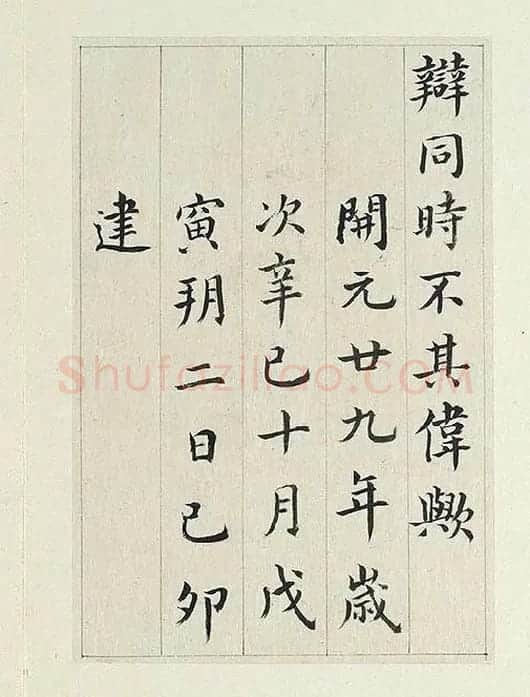 辯同時不其偉歟
開元廿九年歲
次辛巳十月戊
寅朔二日己卯
建
Shufaziliao.COM